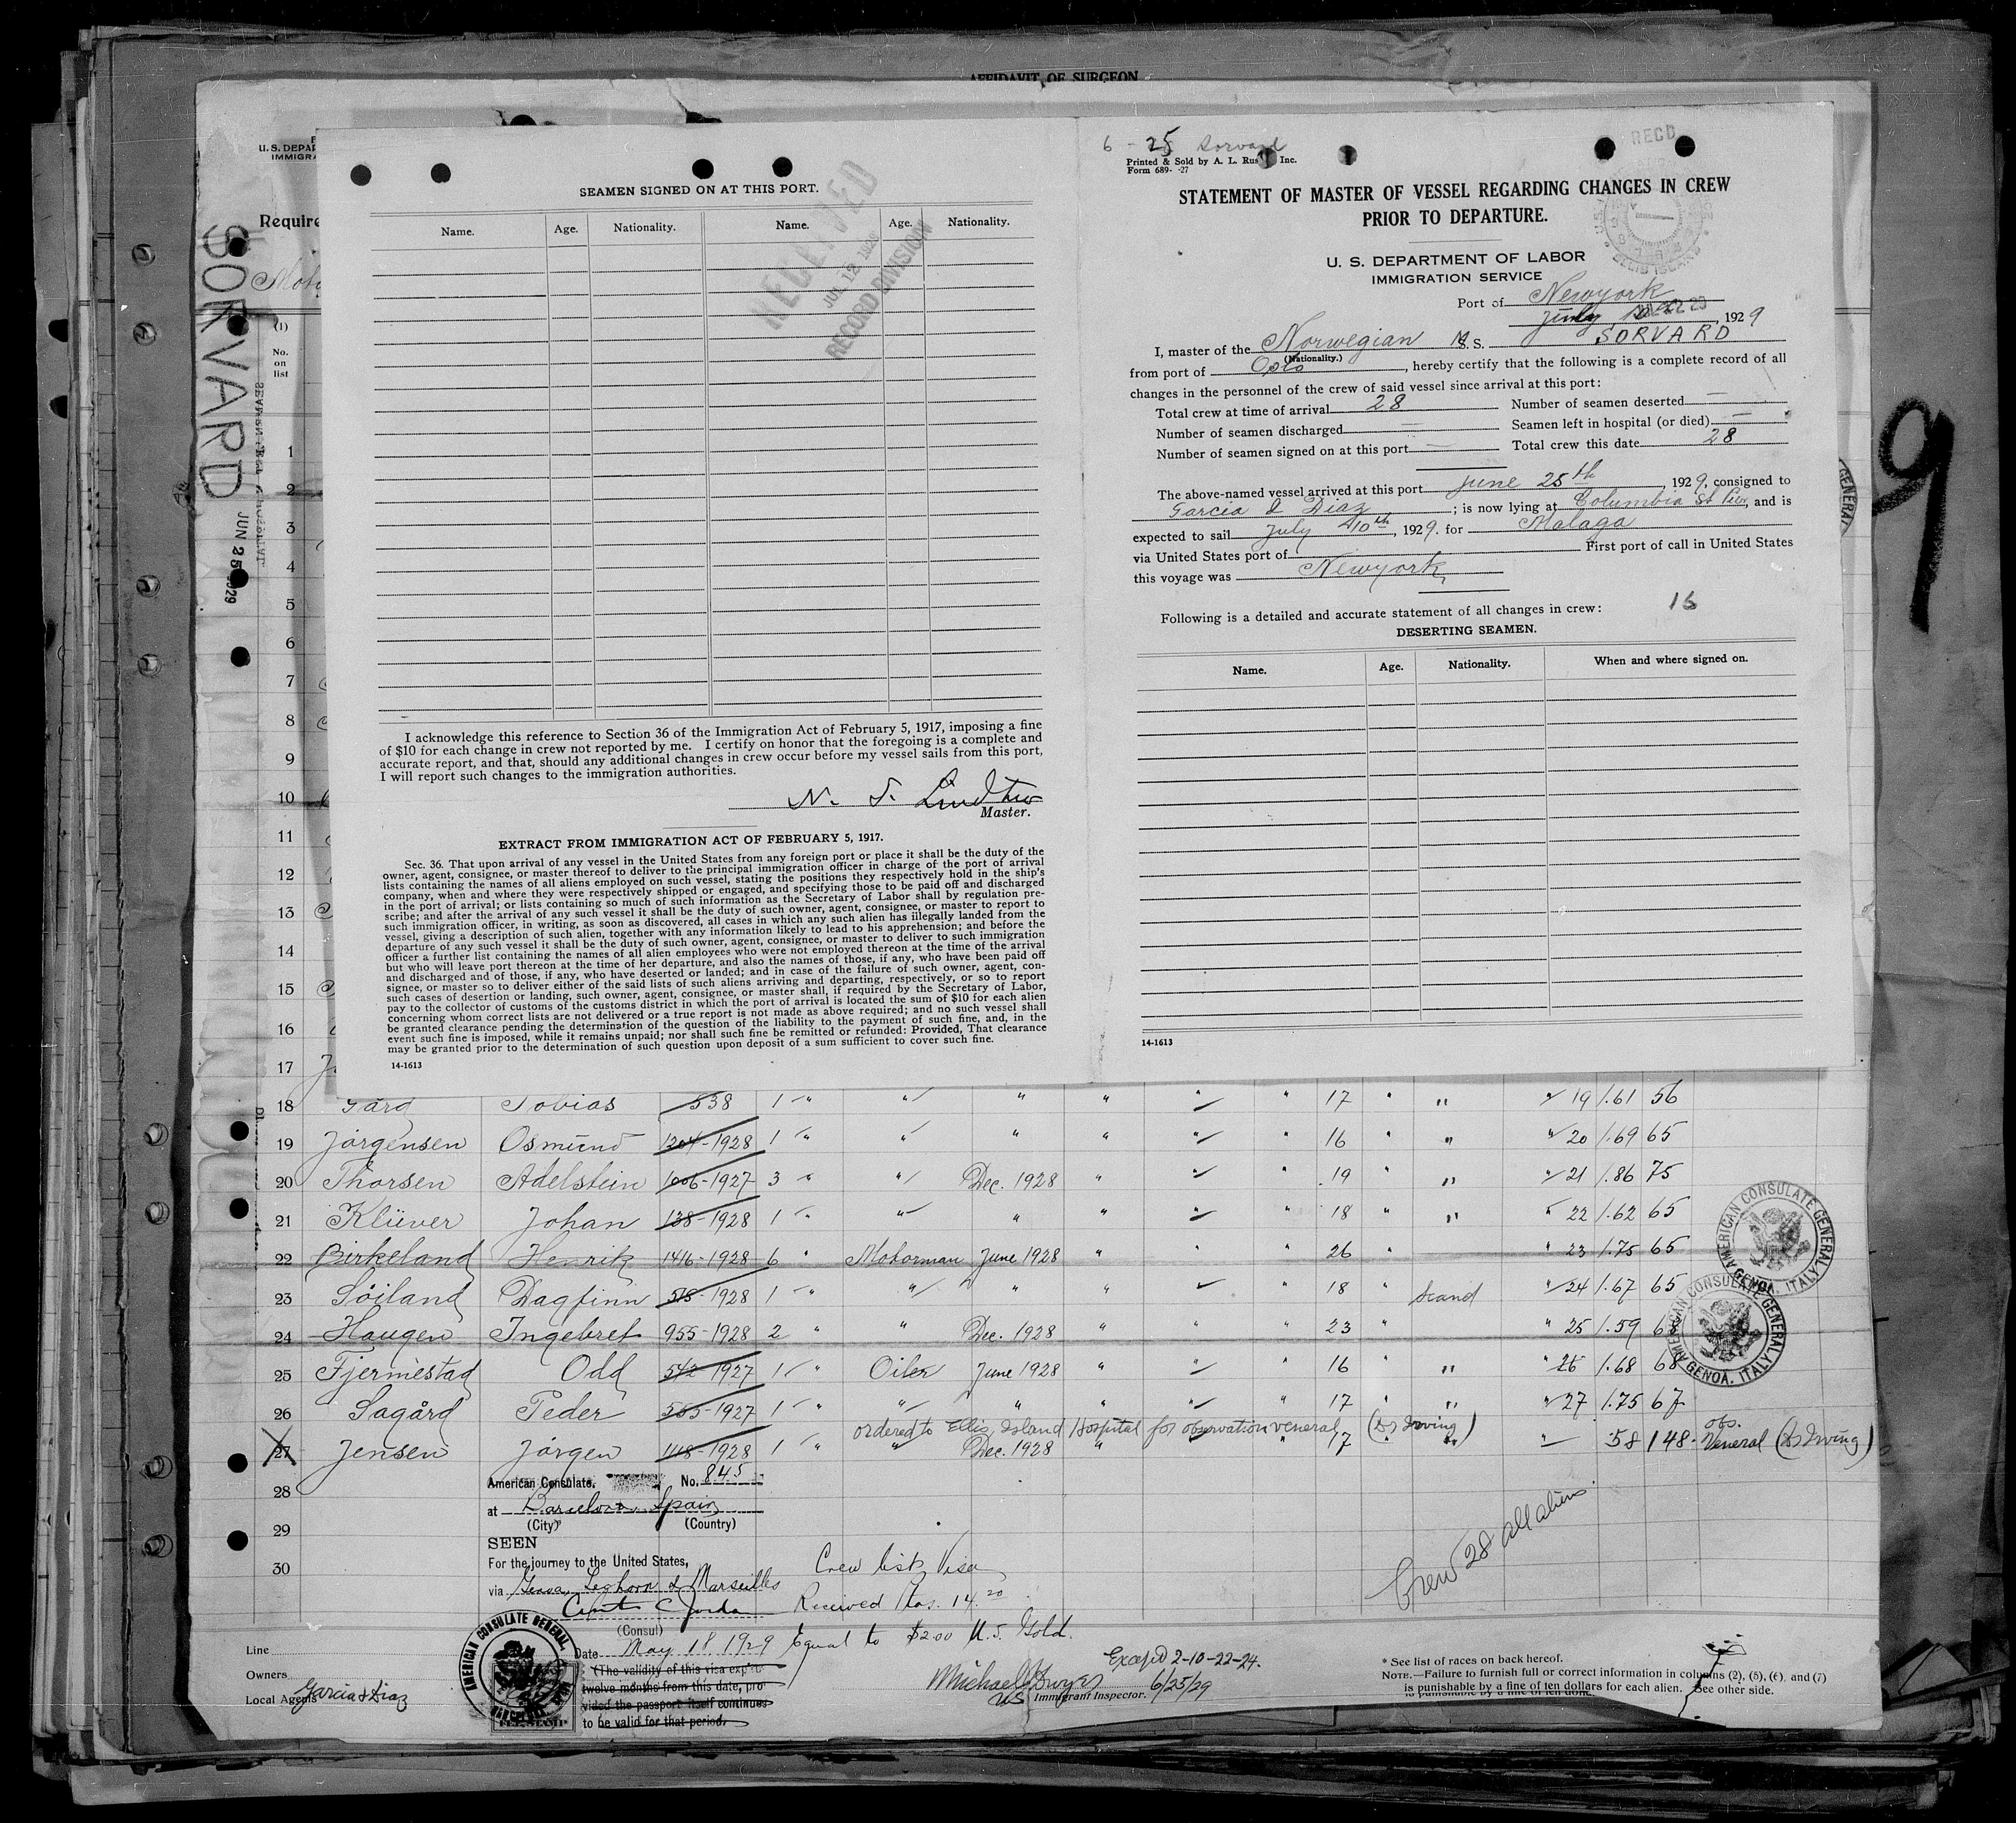 AFFIDAVIT OF SURGEON
U. S. DEPAR
IMMIGRA
Require
SORVARD
JUN 25 1929
(1)
No.
on
list
1
2
3
4
5
6
7
8
9
10
11
12
13
14
15
16
17
SEAMEN SIGNED ON AT THIS PORT.
Name. Age. Nationality. Name. Age. Nationality.
RECEIVED
JUL 12 1929
RECORD DIVISION
I acknowledge this reference to Section 36 of the Immigration Act of February 5, 1917, imposing a fine
of $10 for each change in crew not reported by me. I certify on honor that the foregoing is a complete and
accurate report, and that, should any additional changes in crew occur before my vessel sails from this port,
I will report such changes to the immigration authorities.
N. S.
Master.
EXTRACT FROM IMMIGRATION ACT OF FEBRUARY 5, 1917.
Sec. 36. That upon arrival of any vessel in the United States from any foreign port or place it shall be the duty of the
owner, agent, consignee, or master thereof to deliver to the principal immigration officer in charge of the port of arrival
lists containing the names of all aliens employed on such vessel, stating the positions they respectively hold in the ship's
company, when and where they were respectively shipped or engaged, and specifying those to be paid off and discharged
in the port of arrival; or lists containing so much of such information as the Secretary of Labor shall by regulation pre-
scribe; and after the arrival of any such vessel it shall be the duty of such owner, agent, consignee, or master to report to
such immigration officer, in writing, as soon as discovered, all cases in which any such alien has illegally landed from the
vessel, giving a description of such alien, together with any information likely to lead to his apprehension; and before the
departure of any such vessel it shall be the duty of such owner, agent, consignee, or master to deliver to such immigration
officer a further list containing the names of all alien employees who were not employed thereon at the time of the arrival
but who will leave port thereon at the time of her departure, and also the names of those, if any, who have been paid off
and discharged and of those, if any, who have deserted or landed; and in case of the failure of such owner, agent, con-
signee, or master so to deliver either of the said lists of such aliens arriving and departing, respectively, or so to report
such cases of desertion or landing, such owner, agent, consignee, or master shall, if required by the Secretary of Labor,
pay to the collector of customs of the customs district in which the port of arrival is located the sum of $10 for each alien
concerning whom correct lists are not delivered or a true report is not made as above required; and no such vessel shall
be granted clearance pending the determination of the question of the liability to the payment of such fine, and, in the
event such fine is imposed, while it remains unpaid; nor shall such fine be remitted or refunded: Provided, That clearance
may be granted prior to the determination of such question upon deposit of a sum sufficient to cover such fine.
14-1613
6 - 25 Sorvard
Printed & Sold by A. L. Rus Inc.
Form 689- -27
RECD
ELLIS ISLAND
STATEMENT OF MASTER OF VESSEL REGARDING CHANGES IN CREW
PRIOR TO DEPARTURE.
U. S. DEPARTMENT OF LABOR
IMMIGRATION SERVICE
Port of Newyork
July 1929
I, master of the Norwegian M S. S. SORVARD
(Nationality.)
from port of Oslo, hereby certify that the following is a complete record of all
changes in the personnel of the crew of said vessel since arrival at this port:
Total crew at time of arrival 28 Number of seamen deserted —
Number of seamen discharged — Seamen left in hospital (or died) —
Number of seamen signed on at this port — Total crew this date 28
The above-named vessel arrived at this port June 25th, 1929, consigned to
Garcia & Diaz; is now lying at Columbia St Pier, and is
expected to sail July 10th, 1929. for Malaga
via United States port of First port of call in United States
this voyage was Newyork,
Following is a detailed and accurate statement of all changes in crew: 16
DESERTING SEAMEN.
Name. Age. Nationality. When and where signed on.
14-1613
9
18 Tobias 538 1 " " " " " 17 " " " 19 1.61 56
19 Jørgensen Osmund 1204-1928 1 " " " " " 16 " " " 20 1.69 65
20 Thorsen Adelstein 1006-1927 3 " " Dec. 1928 " " 19 " " " 21 1.86 75
21 Klüver Johan 138-1928 1 " " " " " 18 " " " 22 1.62 65
22 Birkeland Henrik 1416-1928 6 " Motorman June 1928 " " " 26 " " 23 1.75 65
23 Søiland Dagfinn 515-1928 1 " " " " " 18 " Scand " 24 1.67 65
24 Haugen Ingebret 955-1928 2 " " Dec. 1928 " " " 23 " " 25 1.59
25 Fjermestad Odd 542-1927 1 " Oiler June 1928 " " 16 " " " 26 1.68 68
26 Sagård Peder 555-1927 1 " " " " " 17 " " " 27 1.75 67
ordered to Ellis Island Hospital for observation veneral (Dr Irving) obs.
27 Jensen Jørgen 1118-1928 1 " " Dec. 1928 " " 17 " " 58 148 Veneral (Dr Irving)
28
29
30
American Consulate. No. 845
at Barcelona Spain
(City) (Country)
SEEN
For the journey to the United States,
via Genoa, Leghorn & Marseilles
(Consul)
Date May 18. 1929
(The validity of this visa expires
twelve months from this date, pro
vided the passport itself continues
to be valid for that period.
Crew list Visa
Received Ptas. 14.20
Equal to $2.00 U.S. Gold.
Crew 28 all aliens
AMERICAN CONSULATE GENERAL
GENOA, ITALY
AMERICAN CONSULATE GENERAL
GENOA, ITALY
AMERICAN CONSULATE GENERAL
Line
Owners
Local Agents Garcia & Diaz
Except 2-10-22-24.
Michael
US Immigrant Inspector. 6/25/29
* See list of races on back hereof.
NOTE.—Failure to furnish full or correct information in columns (2), (5), (6), and (7)
is punishable by a fine of ten dollars for each alien. See other side.